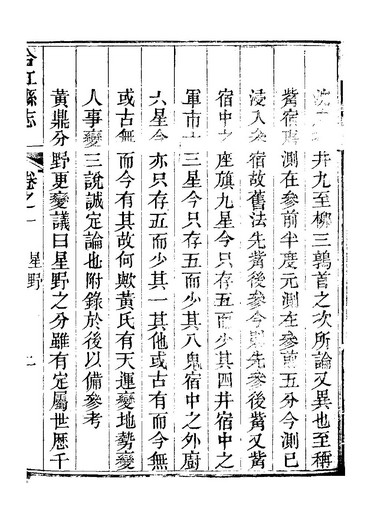 井九至柳三鶉首之次所論又異也至稱
觜宿 測在參前半度元測在參前五分今測已
浸入參宿故舊法先觜後參今則先參後觜又觜
宿中之座旗九星今只存五而少其四井宿中之
軍市十三星今只存五而少其八鬼宿中之外廚
六星今亦只存五而少其一其他或古有而今無
或古無而今有其故何歟黃氏有天運變地勢變
人事變三說誠定論也附錄於後以備參考
黃鼎分野更變議曰星野之分雖有定屬世歷千
合江縣志
卷之一
星野
二